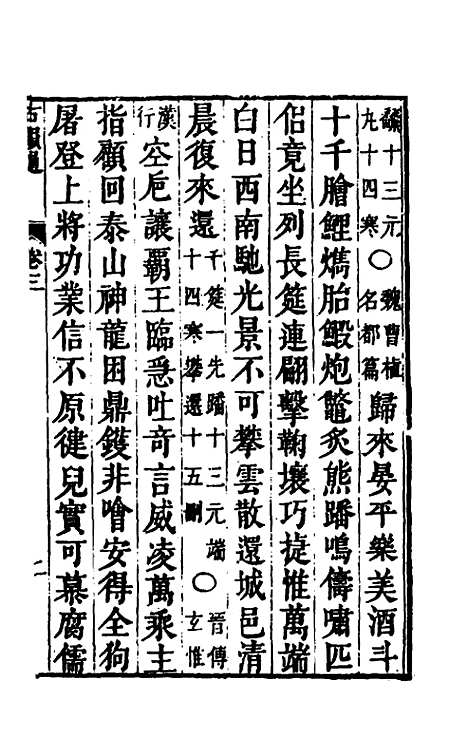 䌓十三元丸十四寒〇魏曹植名都篇歸來宴平樂美酒斗
十千膾鯉㸅胎鰕炮鼈炙熊蹯鳴儔嘯匹
侶竟坐列長筵連翩擊鞠壤巧捷惟萬端
白日西南馳光景不可攀雲散還城邑清
晨復來還千筵一先蹯十三元端十四寒攀還十五刪〇晉傅玄惟
漢行空巵讓霸王臨急吐奇言威凌萬乘主
指顧回泰山神龍困鼎鑊非噲安得全狗
屠登上將功業信不原健兒實可慕腐儒
古韻通 卷三 二